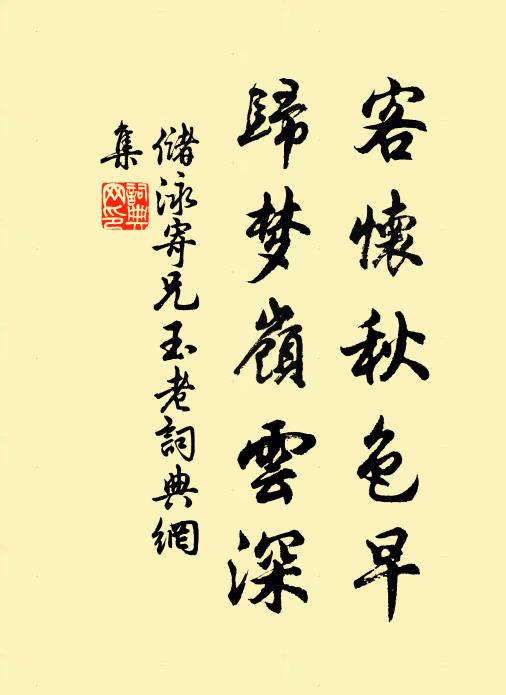 客懷秋色早
歸梦嶺雲深
儲泳寄兄玉老詞典網
集
詞典
网印